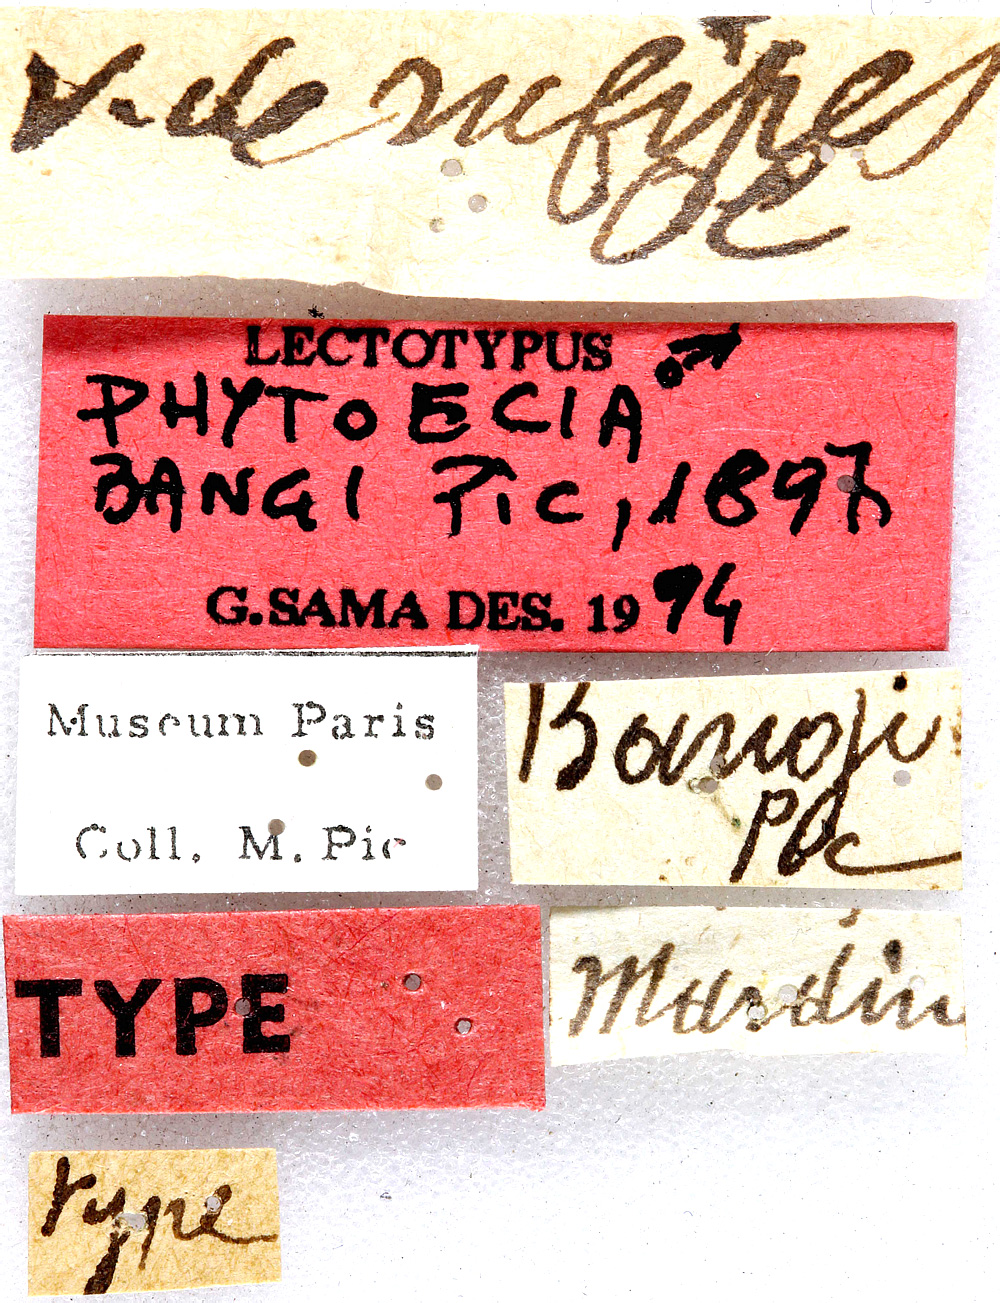 v. de rufipes
LECTOTYPUS ♂
PHYTOECIA
BANGI PIC, 1897
G. SAMA DES. 1994
Museum Paris
Coll. M. Pic
Bangi
Pic
TYPE
Mardin
type